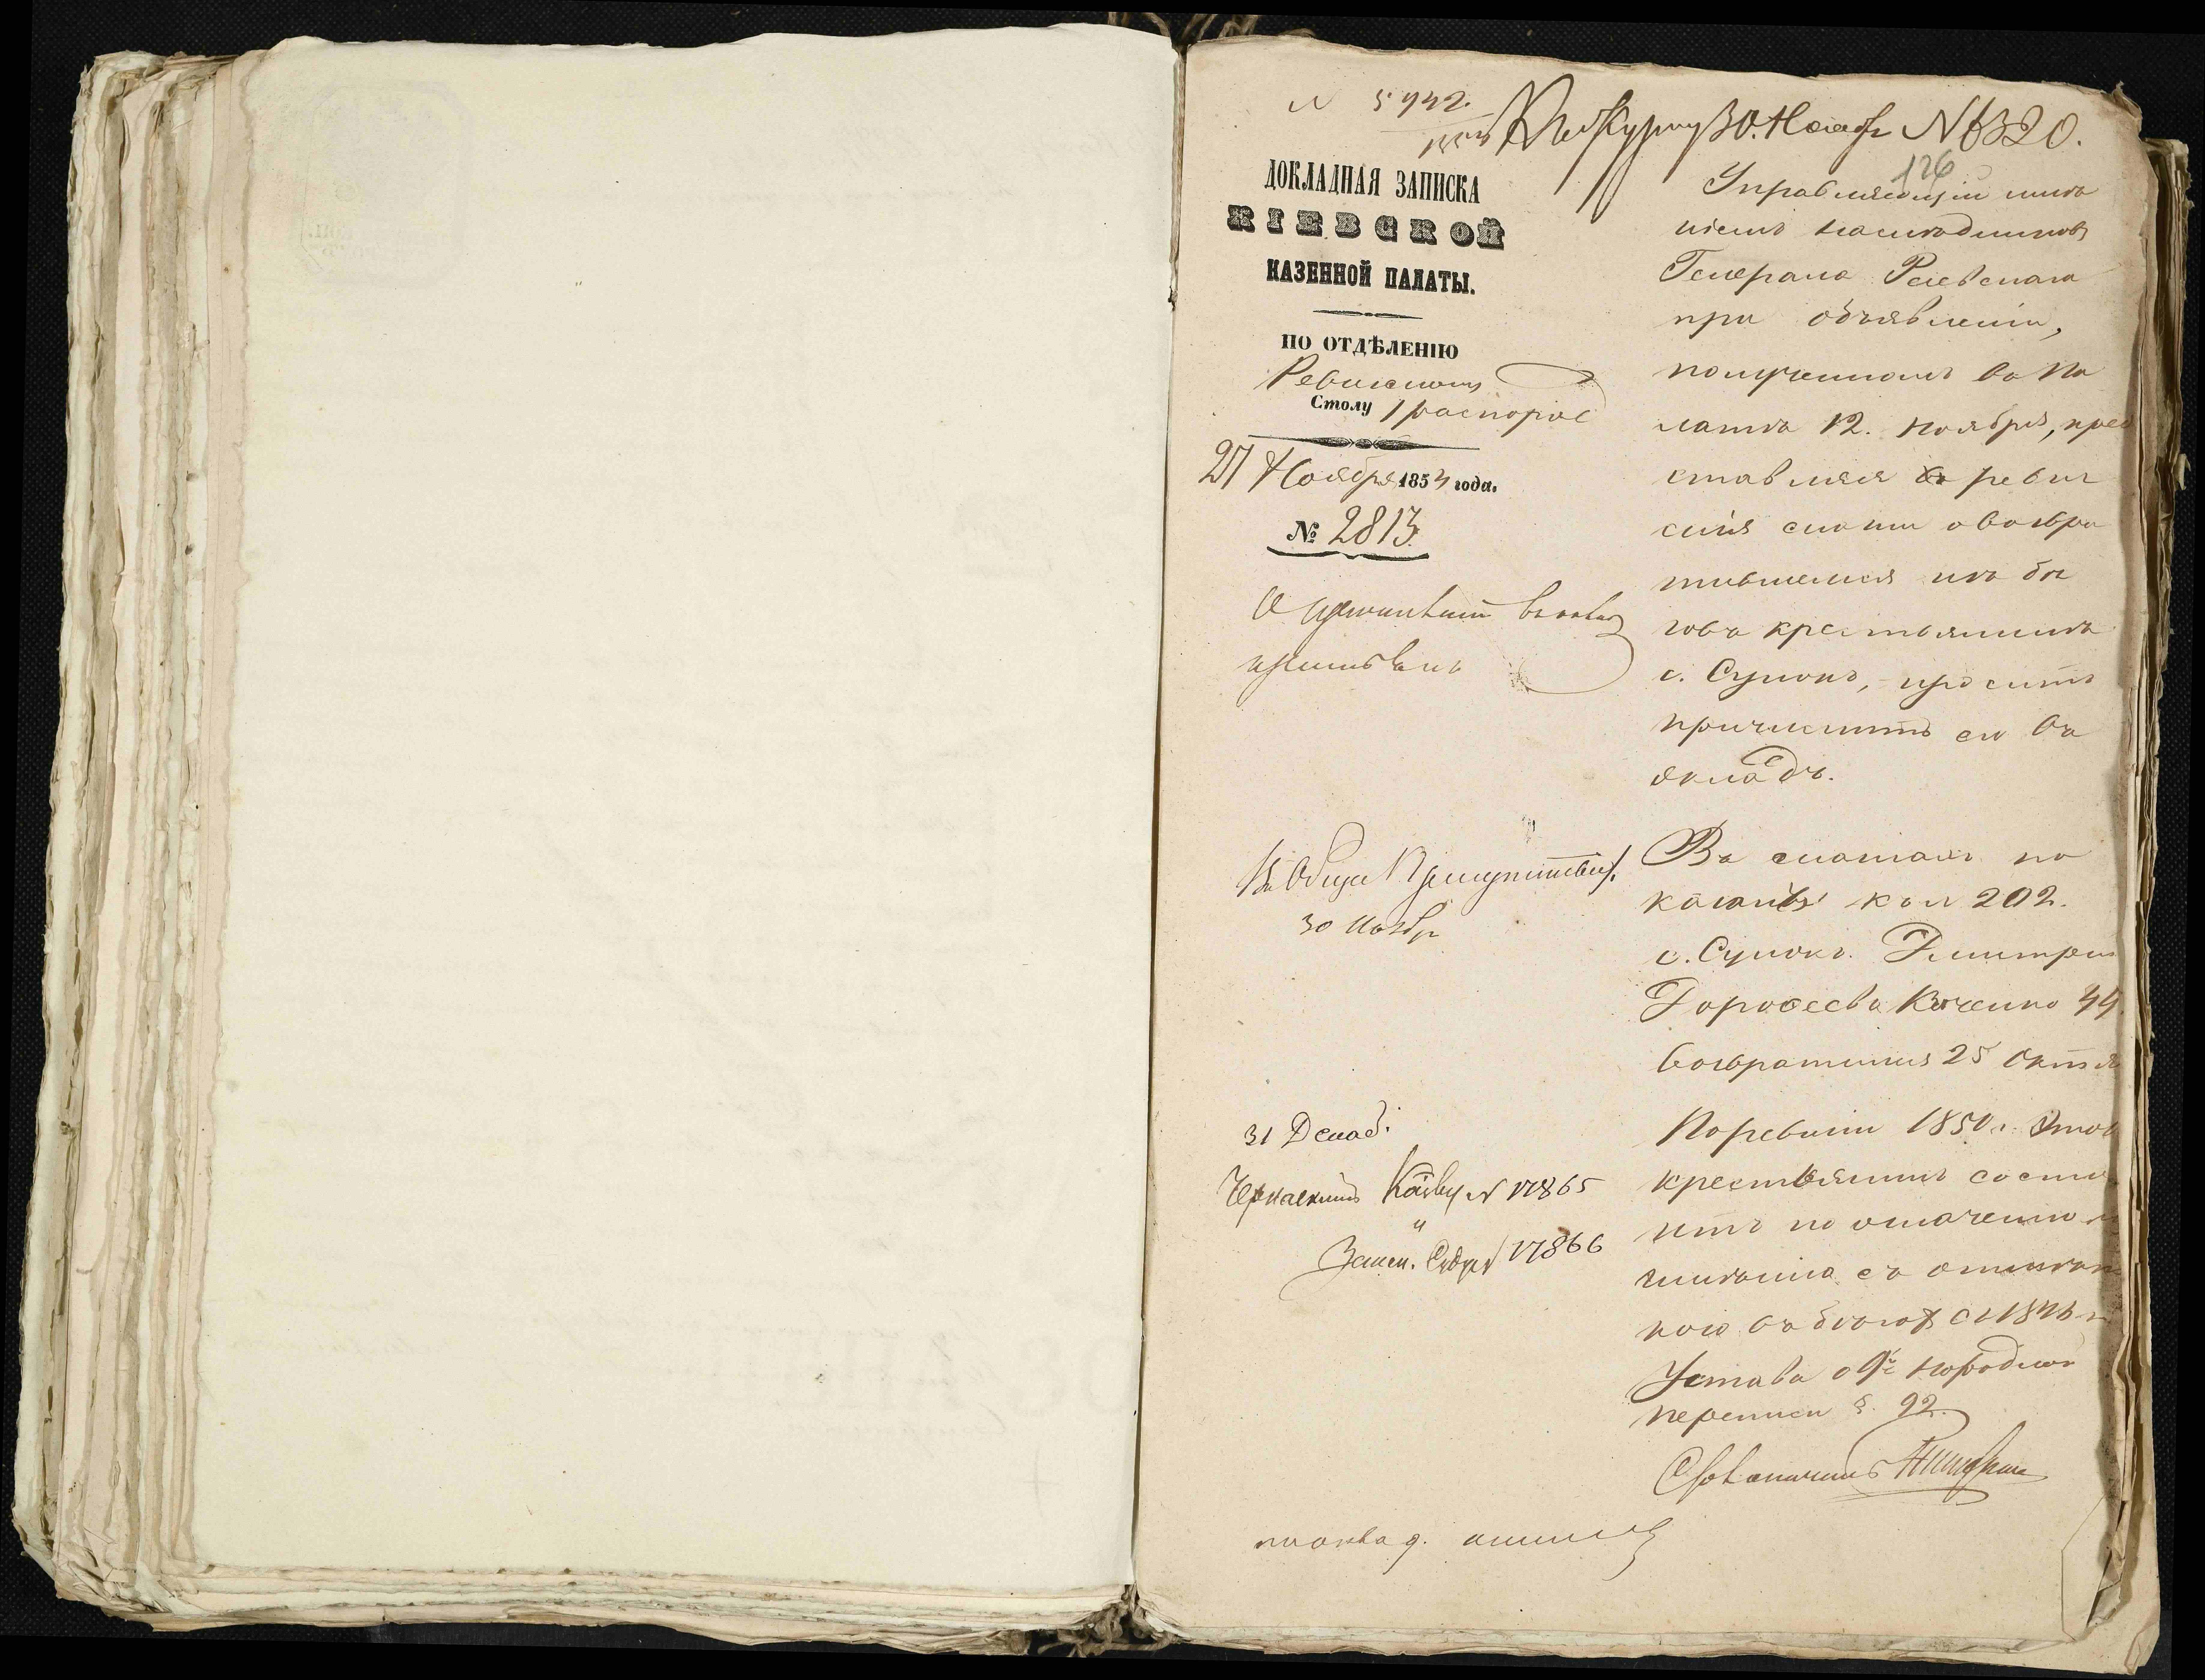 № 5942.
Къ Журналу 30. Ноября № 6320.
126
ДОКЛАДНАЯ ЗАПИСКА
КІЕВСКОЙ
КАЗЕННОЙ ПАЛАТЫ.
ПО ОТДѢЛЕНІЮ
Ревизскому
Столу 1 распоряд
27 Ноября 1854 года.
№ 2813.
О причисленіи въ окладъ
крестьянъ
Въ Общее Присутствіе.
30 Ноябр
31 Декаб.
Черкаскимъ Казнч. № 17865
" Земск. Суду № 17866
Управляющій имѣ
ніемъ наслѣдниковъ
Генерала Раевскаго
при объявленіи,
полученномъ въ Па
латѣ 12. Ноября, пред
ставляя ревиз
скія сказки о возвра
тившемся изъ бѣ
говъ крестьянинѣ
с. Сунокъ, проситъ
причислить его въ
окладъ.
Въ сказкахъ по
казаны: кол 202.
с. Сунокъ. Дмитрій
Дорофеевъ 44
возвратился 25 Октя
По ревизіи 1850 г. Этотъ
крестьянинъ состо
итъ по означенно
имѣнію съ отмѣт
кою въ бѣгахъ съ 184
Устава о 9й народной
переписи §. 92.
Столоначальникъ